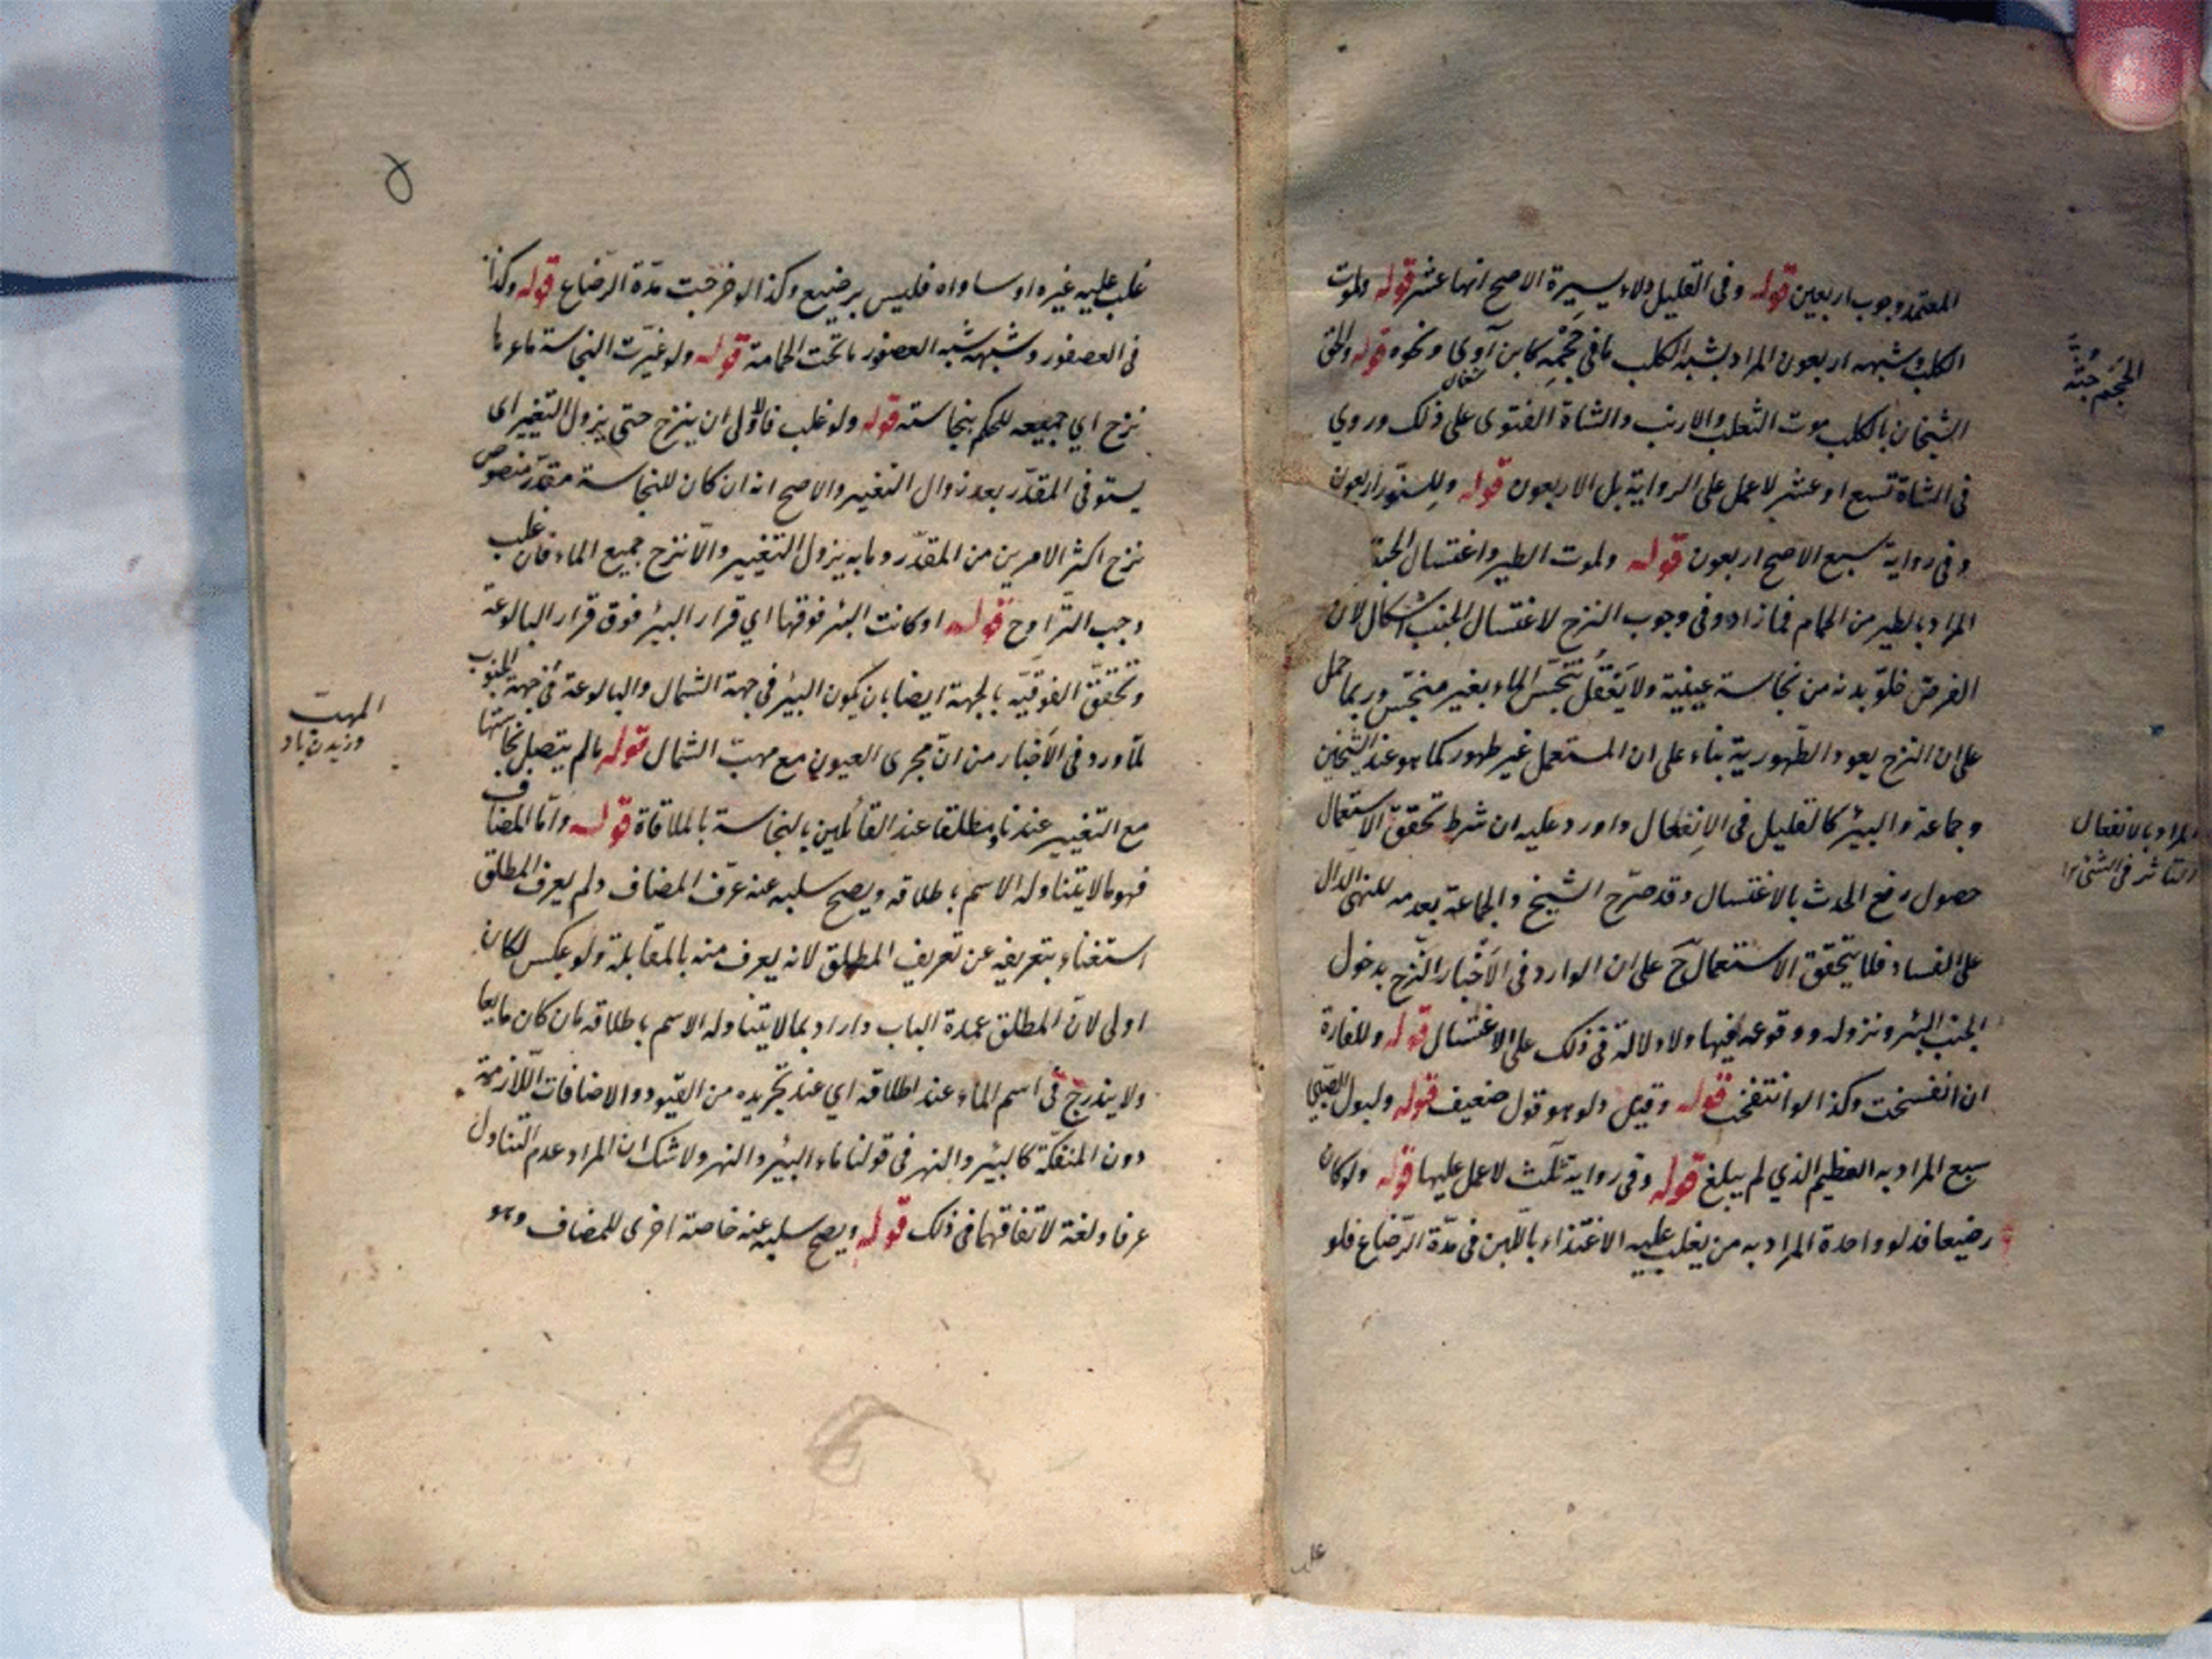 المعتمد وجوب اربعين قوله وفى القليل دلاء يسيرة الاصح انها عشر قوله ولموت
الكلب وشبهه اربعون المراد بشبه الكلب ما فى حَجْمِه كابن آوى ونحوه قوله والحق
شغال
الشيخان بالكلب موت الثعلب والارنب والشاة الفتوى على ذلك وروي
فى الشاة تسع او عشر لا عمل على الرواية بل الاربعون قوله وللسنّور اربعون
وفى رواية سبع الاصح اربعون قوله ولموت الطير واغتسال الجنب
المراد بالطير من الحمام فما زاد وفى وجوب النزح لاغتسال الجنب اشكال لان
الفرض خلوّ بدنه من نجاسة عينية ولا يُعْقَل تنجّس الماء بغير منجّس وربما حمل
على ان النزح يعود الطّهورية بناء على ان المستعمل غير طهور كما هو عند الشيخين
وجماعة والبئر كالقليل فى الانفعال واورد عليه ان شرط تحقق الاستعمال
حصول رفع الحدث بالاغتسال وقد صرّح الشيخ والجماعة بعدمه للنهى الدال
على الفساد فلا يتحقق الاستعمال ح على ان الوارد فى الاَخْبار النّزح بدخول
الجنب البئر ونزوله ووقوعه فيها ولا دلالة فى ذلك على الاغتسال قوله وللفارة
ان انفسخت وكذا لو انتفخت قوله وقيل دلو هو قول ضعيف قوله ولبول الصبّي
سبع المراد به الفطيم الذي لم يبلغ قوله وفى رواية ثلث لا عمل عليها قوله ولو كان
رضيعا فدلو واحدة المراد به من يغلب عليه الاغتذاء باللّبن فى مدّة الرّضاع فلو
الحَجْم جثّه
المراد بالانفعال
التاثر فى الشئ ١٢
غلب
غلب عليه غيره او ساواه فليس برضيع وكذا لو خرجت مدّة الرضاع قوله وكذا
فى العصفور وشبهه شبه العصفور ما تحت الحمامة قوله ولو غيّرت النجاسة ماءها
نزح اي جميعه للحكم بنجاسته قوله ولو غلب فالاَولى ان ينزح حتى يزول التغيير اى
يستوفى المقدّر بعد زوال التغيير والاصح انه ان كان للنجاسة مقدّر منصوص
نزح اكثر الامرين من المقدّر وما به يزول التغيير والّا نزح جميع الماء فان غلب
وجب التّراوح قوله او كانت البئر فوقها اي قرار البئر فوق قرار البالوعة
وتحقّق الفوقيّه بالجهة ايضا بان يكون البئر فى جهة الشمال والبالوعة فى جهة الجنوب
لما ورد فى الاَخبار من انّ مجرى العيون مع مهبّ الشمال قوله ما لم يتصل نجاستها
مع التغيير عندنا ومطلقا عند القائلين بالنجاسة بالملاقاة قوله وامّا المضاف
فهو ما لا يتناوله الاسم باطلاقه ويصح سلبه عنه عرّف المضاف ولم يعرف المطلق
استغناء بتعريفه عن تعريف المطلق لانه يعرف منه بالمقابلة ولو عكس لكان
اولى لانّ المطلق عمدة الباب واراد بما لا يتناوله الاسم باطلاقه ما ان كان مايعا
ولا يندرج فى اسم الماء عند اطلاقه اي عند تجريده من القيود والاضافات اللّازمة
دون المنفكّة كالبئر والنهر فى قولنا ماء البئر والنهر ولا شك ان المراد عدم التناول
عرفا ولغة لاتفاقهما فى ذلك قوله ويصح سلبه عنه خاصة اخرى للمضاف وهو
المهبّ
وزيدن باد
۵